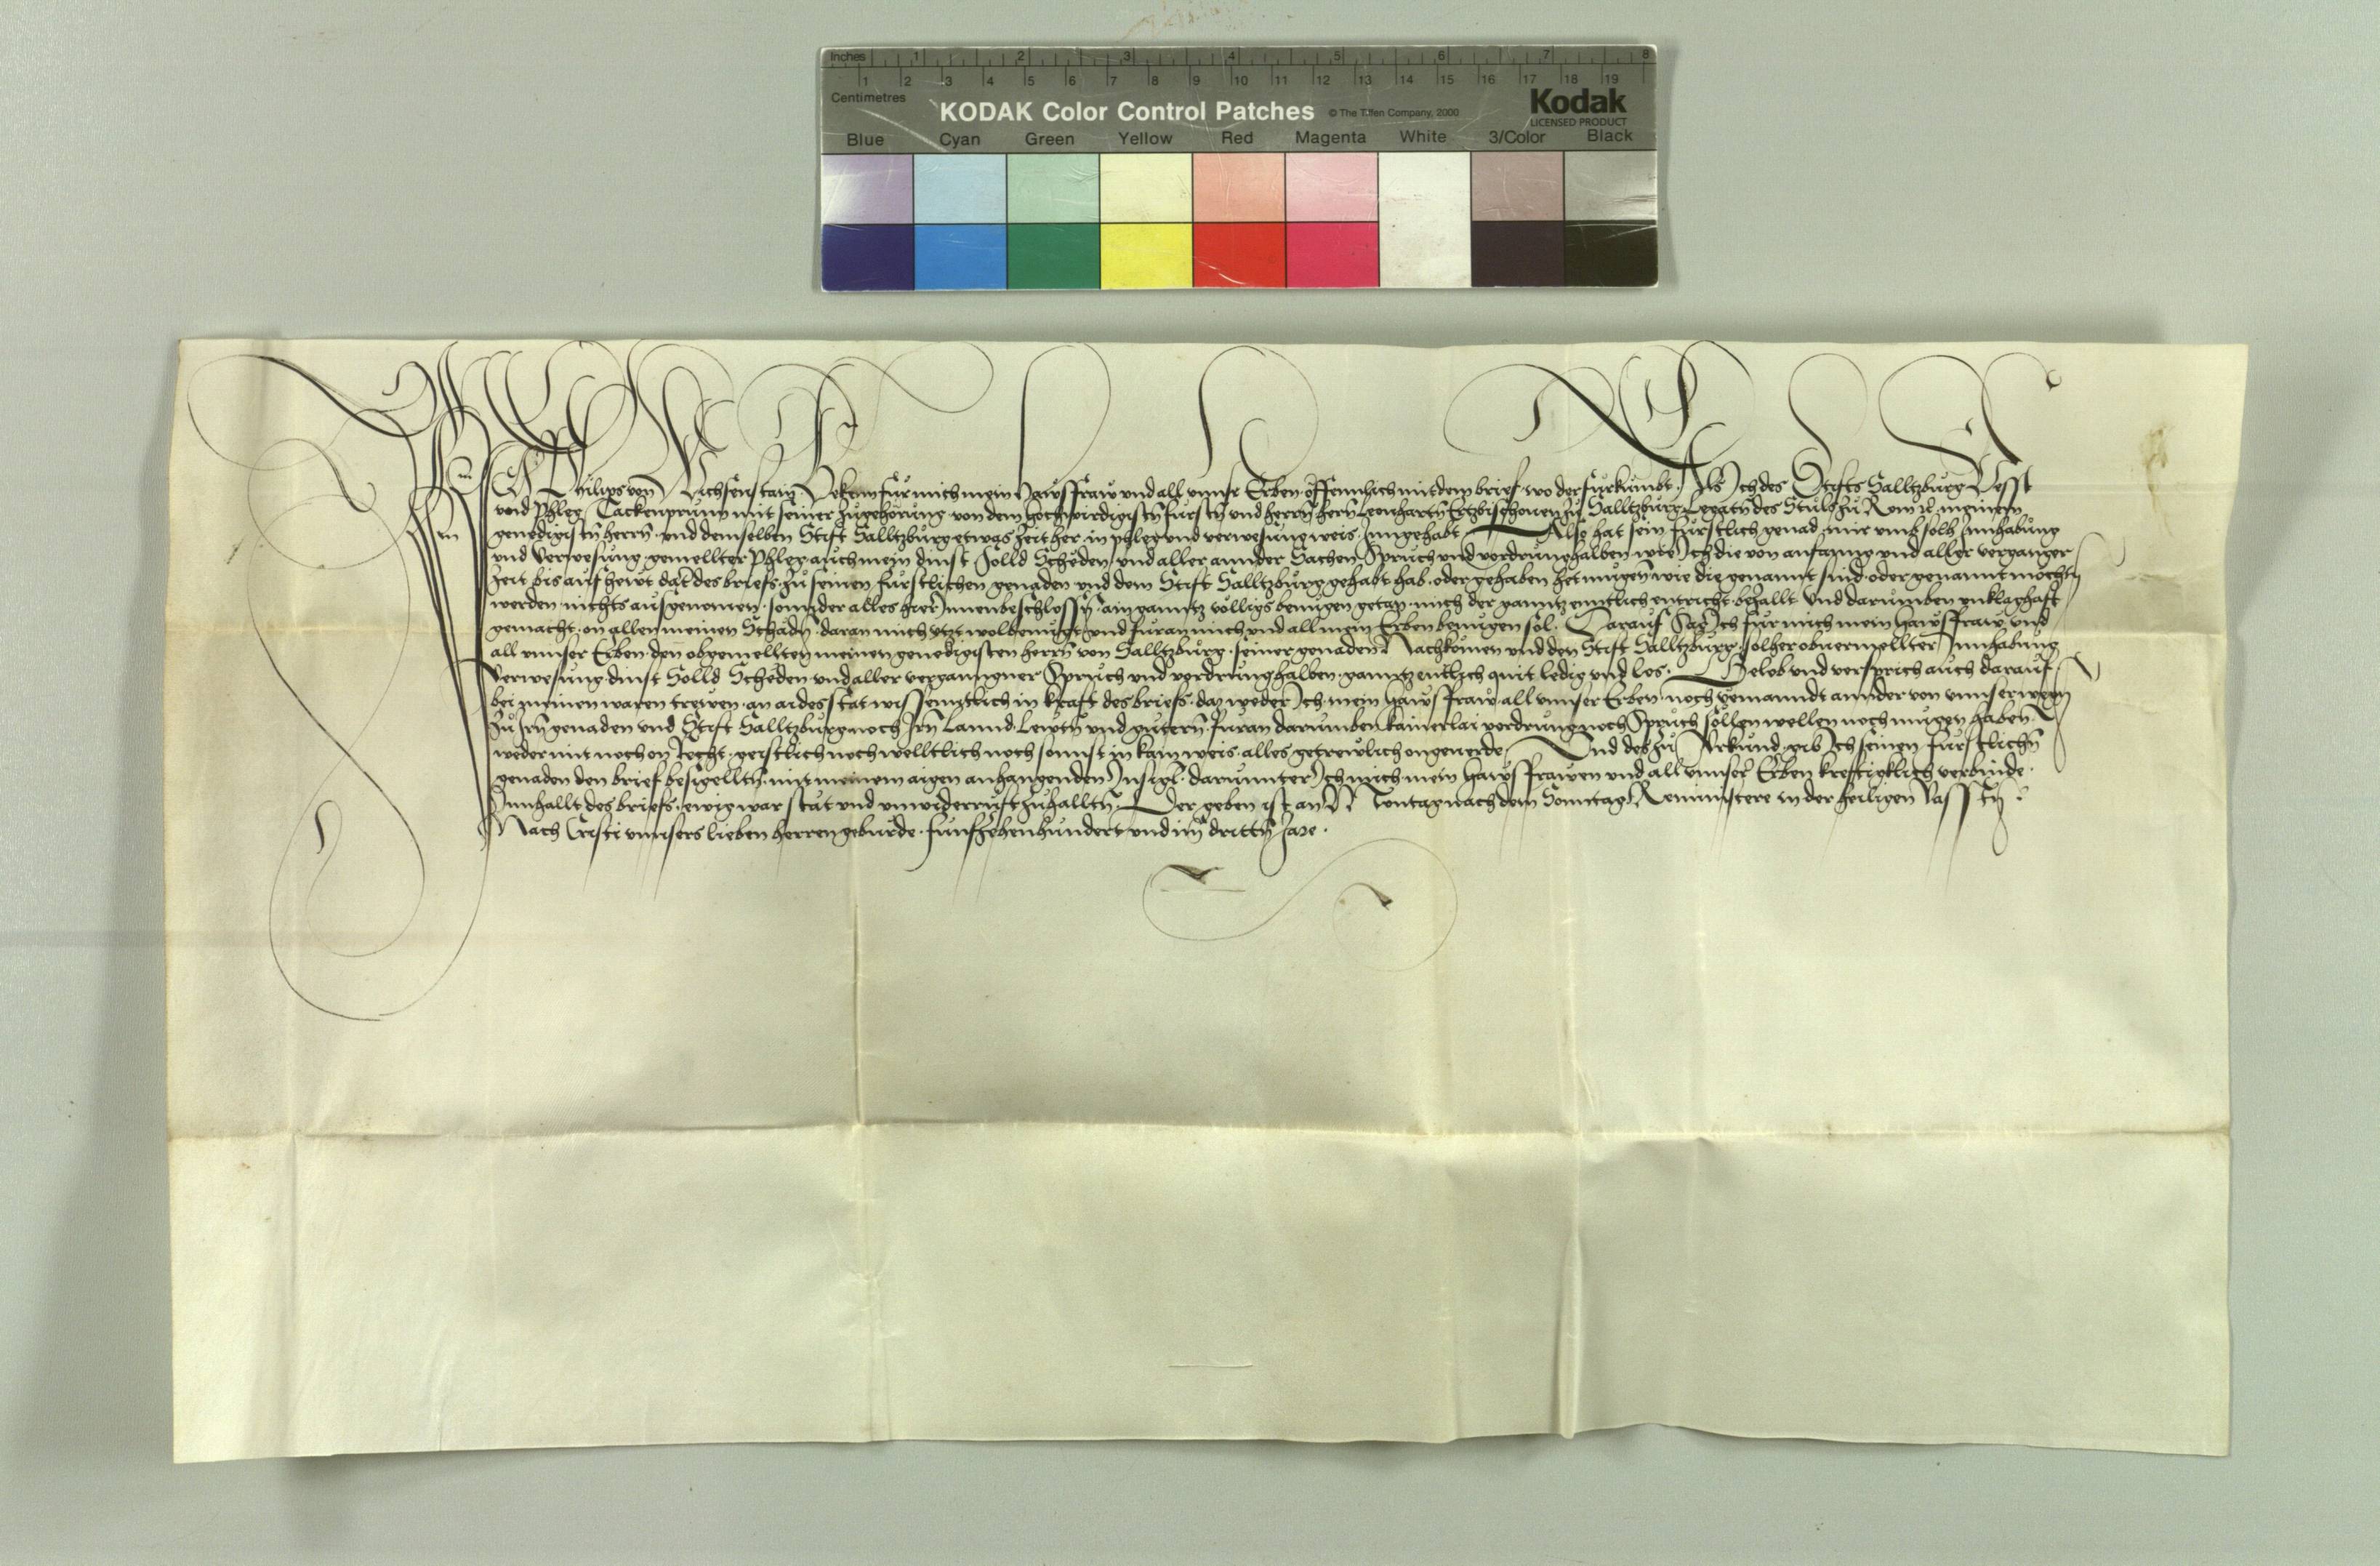 Inches 1 2 3 4 5 6 7 8
1 2 3 4 5 6 7 8 9 10 11 12 13 14 15 16 17 18 19
Centimetres
KODAK Color Control Patches © The Tiffen Company, 2000 Kodak
LICENSED PRODUCT
Blue Cyan Green Yellow Red Magenta White 3/Color Black
Ich Philips von Liechtenstain Bekenn für mich mein Hawsfraw und all unnser Erben offennlich mit dem brief wo der fürkumbt. Als Ich des Stifts Salltzburg Vesst
vnd Phleg Tackenprunn mit seiner zugehörung von dem hochwirdigistn fürstn vnd herrn hern Leonhartn Ertzbischouen zu Salltzburg Legatn des Stuls zu Rom &c. meinem
genedigistn herrn vnd demselben Stift Salltzburg etwas zeit her in phleg vnd verwesung weis Inngehabt Also hat sein fürstlich genad mir vmb solh Innhabung
vnd Verwesung gemellter Phleg auch mein dinst Solld Scheden vnd aller annder Sachen Spruch vnd vordrung halben wie Ich die von anfanng vnd aller verganger
Zeit bis auf heut dat des briefs zu seinen fürstlichen genaden vnd dem Stift Salltzburg gehabt hab oder gehaben het mugen wie die genannt sind oder genannt möchtn
werden nichts ausgenomen sonnder alles hierInnen beschlossn ain ganntz völligs benügen getan mich der ganntz enntlich entricht bezallt vnd darumben vnklaghaft
gemacht on allen meinen Schadn daran mich ytzt wolbenügt vnd füran mich vnd all mein Erben benügen sol. Darauf Sag Ich für mich mein Hawsfraw vnd
all vnnser Erben den obgemellten meinen genedigisten herrn von Salltzburg seiner genaden Nachkomen vnd den Stift Salltzburg solher obuermellter Innhabung
Verwesung dinst Solld Scheden vnd aller verganngner Spruch vnd vordrung halben ganntz entlich quit ledig vnd los. Gelob vnd versprich auch darauf
bei meinen waren trewen an aides stat wissenntlich in kraft des briefs daz weder Ich mein Hawsfraw all vnnser Erben noch yemanndt annder von vnnsern wegn
zu Irn genaden vnd Stift Salltzburg noch Irn Lannd Lewtn vnd gütern füran darumben kainerlai vordrung noch Spruch söllen wellen noch mugen haben
weder mit noch on Recht geistlich noch welltlich noch sonnst in kain weis alles getrewlich ongeuerde Vnd des zu Vrkund gib Ich seinen fürstlichn
genaden den brief besigelltn mit meinem aigen anhangenden Insigl darunnter Ich mich mein Hawsfrawen vnd all vnnser Erben kreftigklich verbinde
Innhallt des briefs ewig war stät vnd vnwiderruft zuhalltn. Der geben ist an Montag nach dem Sonntag Reministere in der heiligen vasstn
Nach Cristi vnnsers lieben herren geburde funfzehenhundert vnd im dritten Jare.